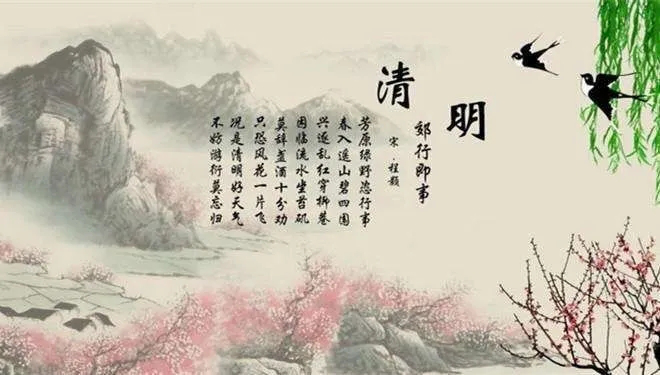 清明
郊行即事
宋·程颢
芳原绿野恣行事
春入遥山碧四围
兴逐乱红穿柳巷
困临流水坐苔矶
莫辞盏酒十分劝
只恐风花一片飞
况是清明好天气
不妨游衍莫忘归